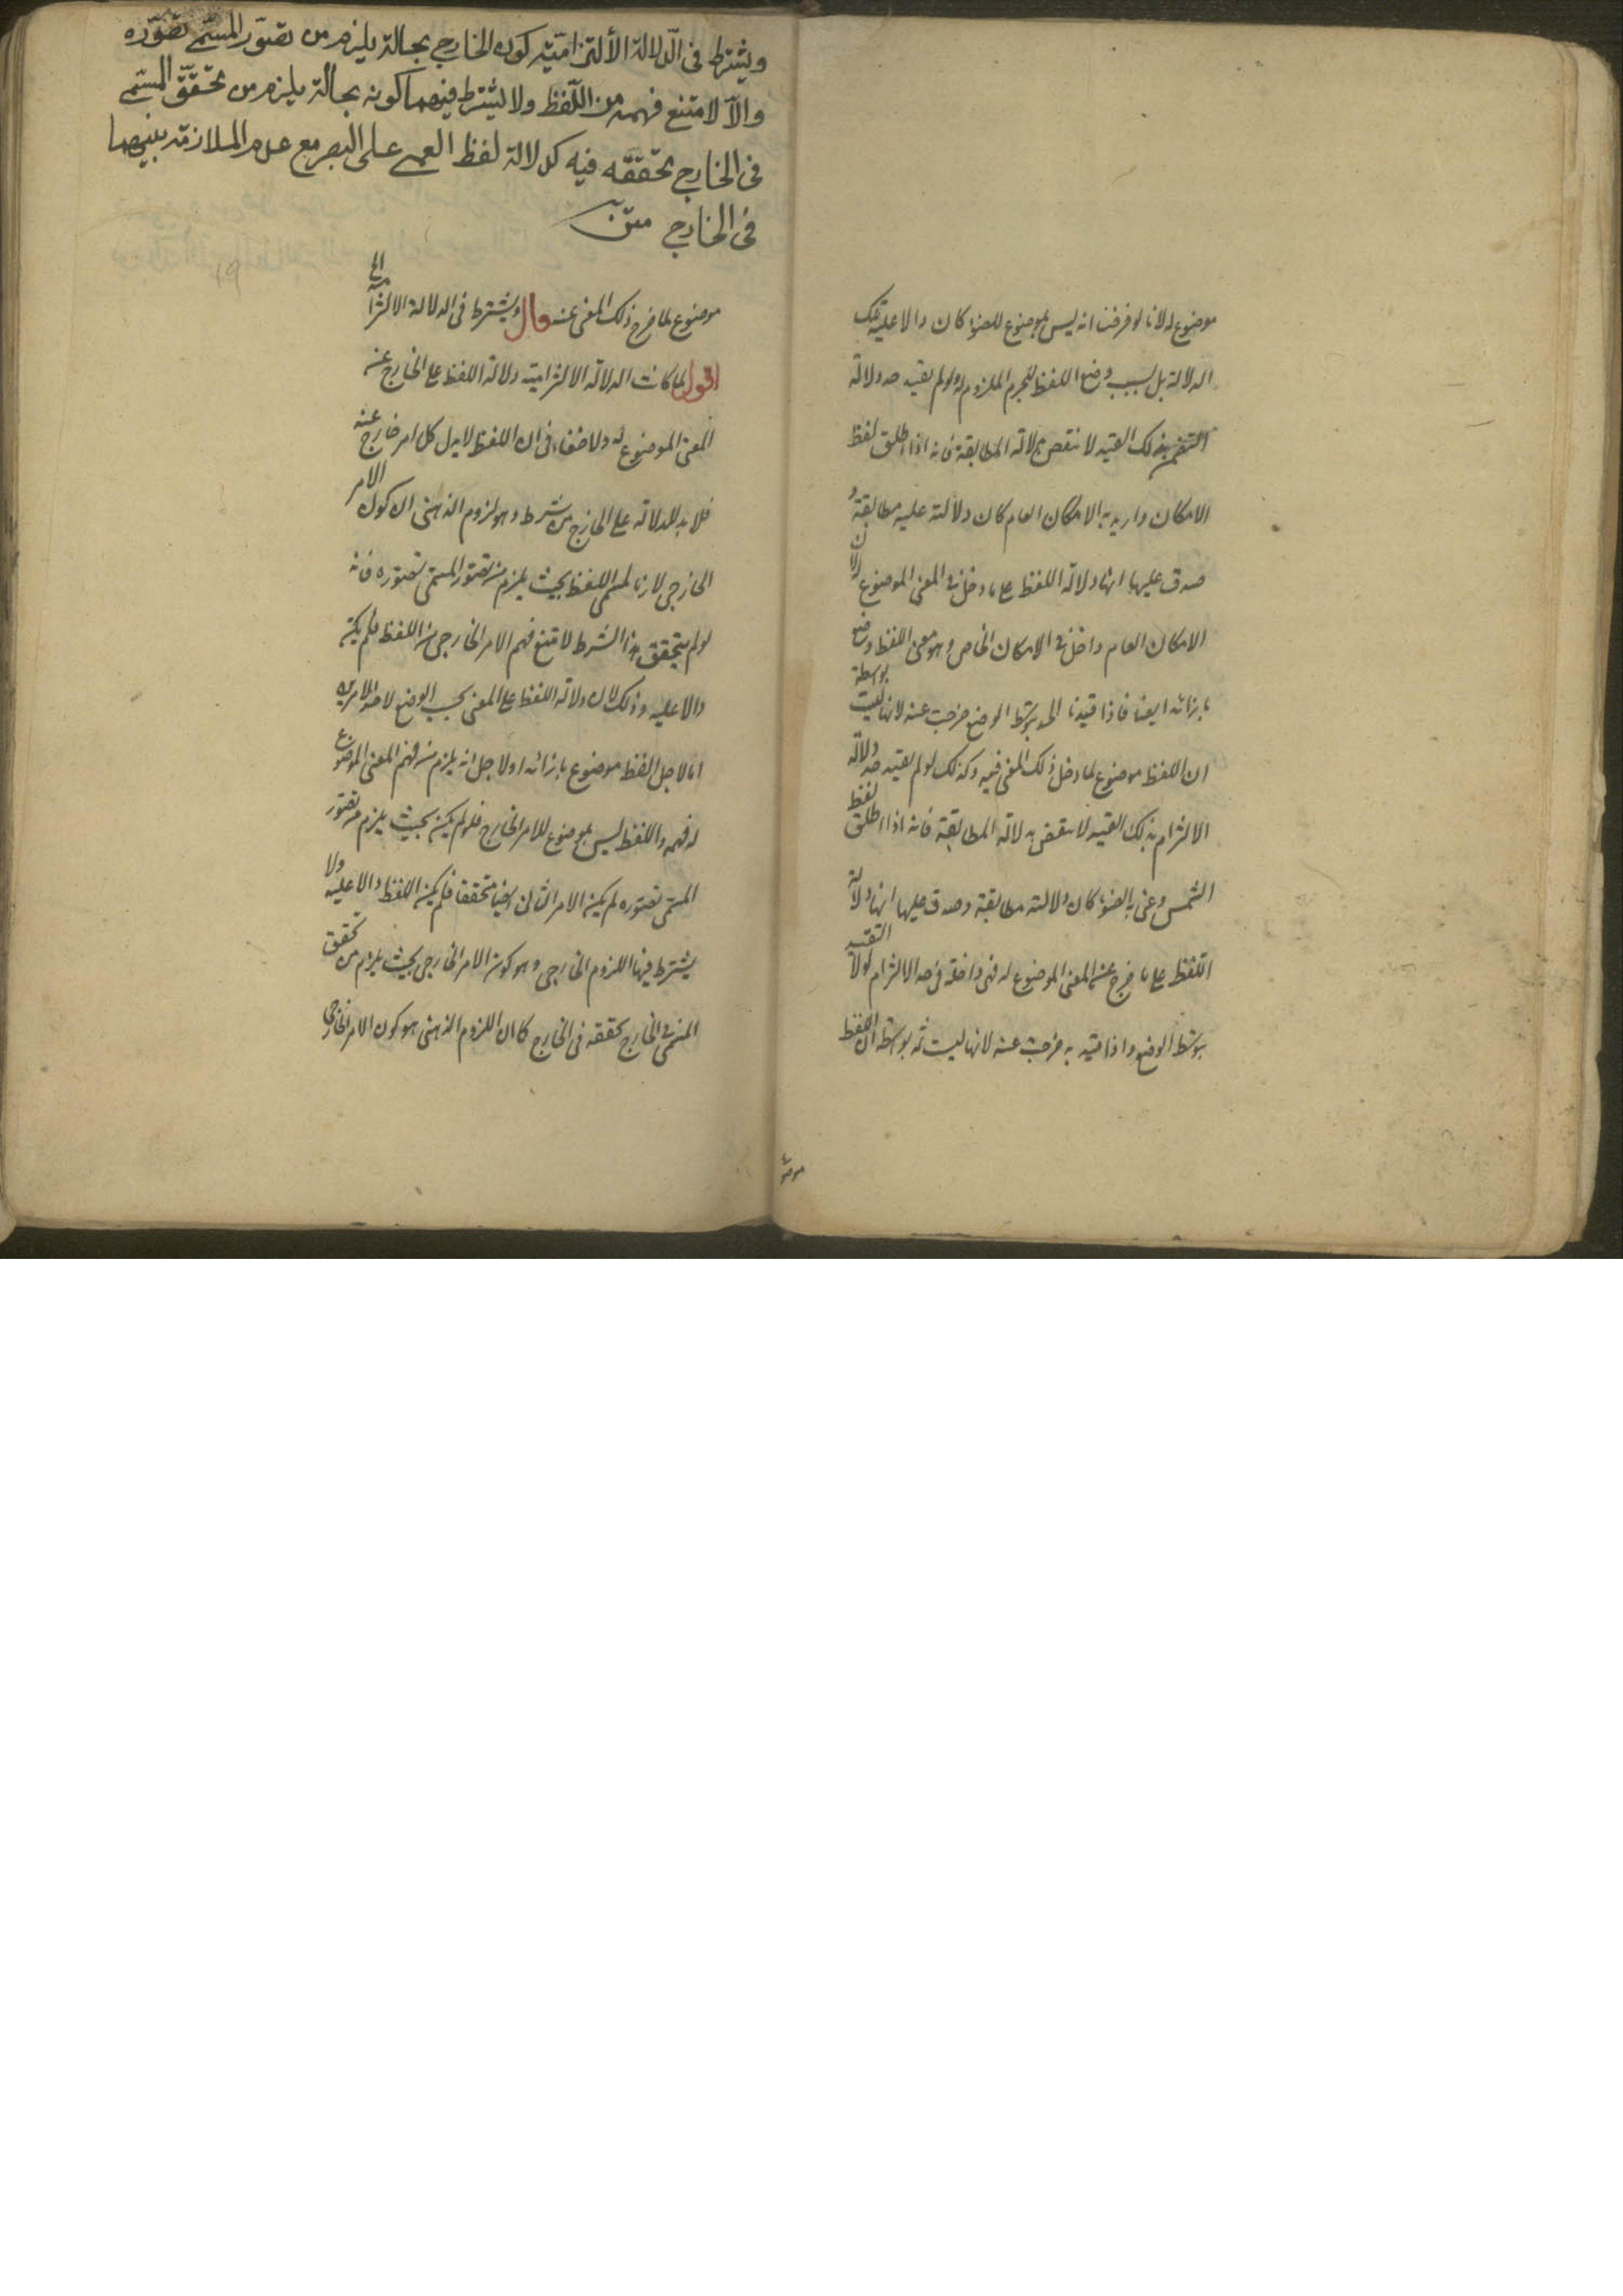 موضوع له لانا لو فرضنا انه ليس بموضوع للضوء كان دالا عليه بتلك
الدلالة بل بسبب وضع اللفظ للجرم الملزوم له ولو لم يقيد حد دلالة
التضمن بذلك القيد لانتقض بدلالة المطابقة فانه اذا اطلق لفظ
الامكان واريد به الامكان العام كان دلالته عليه مطابقة و
صدق عليها انها دلالة اللفظ على ما دخل في المعنى الموضوع له لان
الامكان العام داخل في الامكان الخاص وهو معنى اللفظ وضع
بازائه ايضا فاذا قيدنا الحد بتوسط الوضع خرجت عنه لانها ليست بواسطة
ان اللفظ موضوع لما دخل ذلك المعنى فيه وكذلك لو لم يقيد حد دلالة
الالتزام بذلك القيد لانتقض بدلالة المطابقة فانه اذا اطلق لفظ
الشمس وعنى به الضوء كان دلالته مطابقة وصدق عليها انها دلالة
اللفظ على ما خرج عن المعنى الموضوع له فهى داخلة فى حد الالتزام لولا التقييد
بتوسط الوضع واذا قيد به خرجت عنه لانها ليست ثمه بواسطة ان اللفظ
موضو
ويشترط فى الدّلالة الألتزاميّة كون الخارجي بحالة يلزم من تصوّر المسمّى تصوّره
والاّ لامتنع فهمه من اللّفظ ولا يشترط فيهما كونه بحالة يلزم من تحقّق المسمّى
فى الخارج تحقّقه فيه كدلالة لفظ العمى على البصر مع عدم الملازمة بينهما
فى الخارج متن
19
موضوع لما خرج ذلك المعنى عنه قال ويشترط فى الدلالة الالتزامية الى
اقول لما كانت الدلالة الالتزامية دلالة اللفظ على الخارج عن
المعنى الموضوع له ولا خفاء فى ان اللفظ لا يدل كل امر خارج عنه
فلا بد للدلالة على الخارج من شرط وهو لزوم الذهنى اى كون الامر
الخارجى لازما لمسمى اللفظ بحيث يلزم من تصور المسمى تصوره فانه
لو لم يتحقق هذا الشرط لامتنع فهم الامر الخارجى من اللفظ فلم يكن
دالا عليه وذلك لان دلالة اللفظ على المعنى بحسب الوضع لاحد الامرين
اما لاجل اللفظ موضوع بازائه او لاجل انه يلزم من فهم المعنى الموضوع
له فهمه واللفظ ليس بموضوع للامر الخارج فلو لم يكن بحيث يلزم من تصور
المسمى تصوره لم يكن الامر الثانى ايضا متحققا فلم يكن اللفظ دالا عليه ولا
يشترط فيها اللزوم الخارجى وهو كون الامر الخارجى بحيث يلزم من تحقق
المسمى فى الخارج تحققه فى الخارج كما ان اللزوم الذهنى هو كون الامر الخارجى